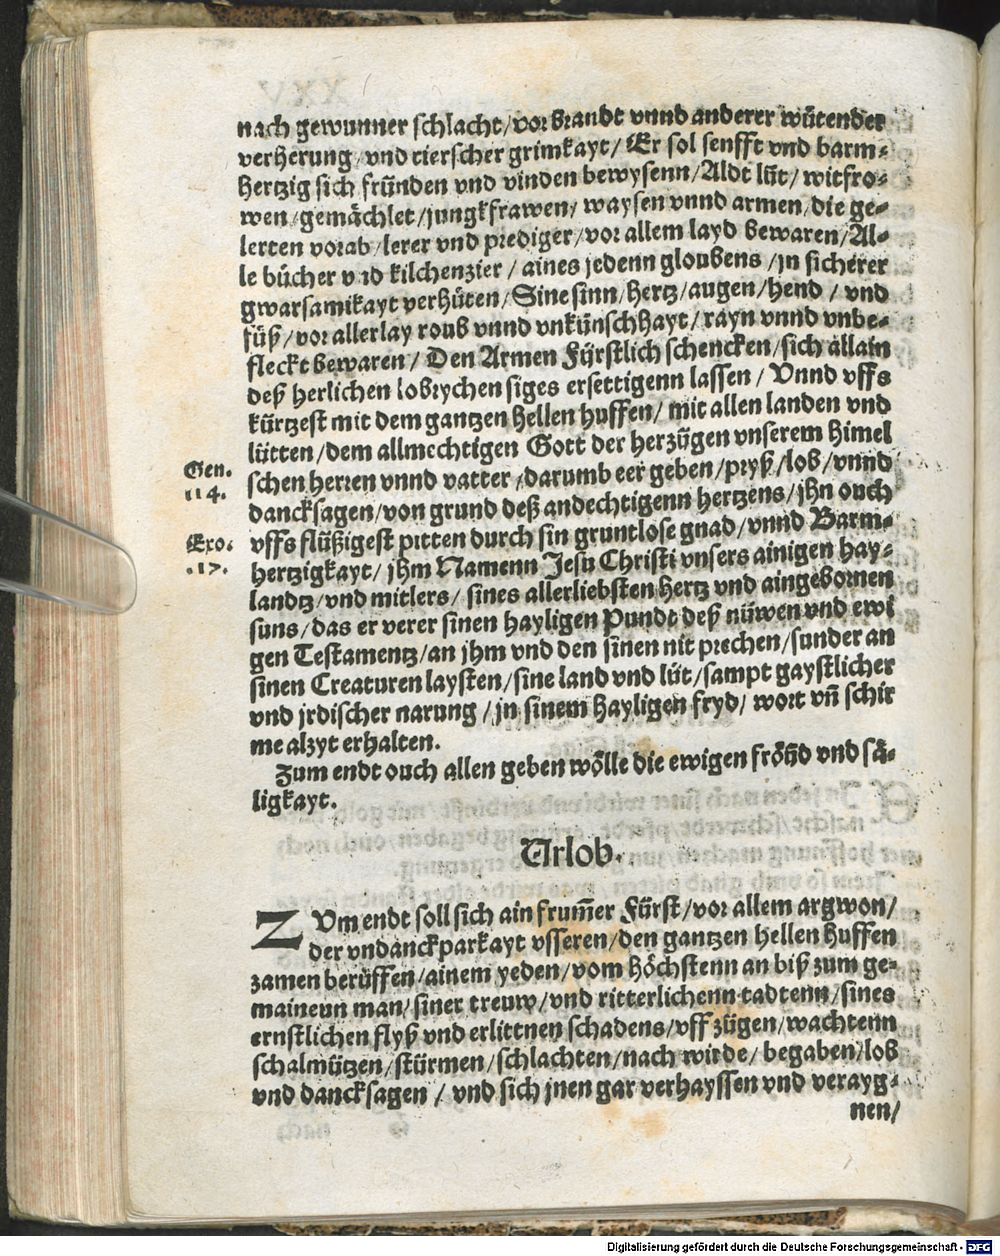 nach gewunner schlacht/vor brandt vnnd anderer wütender
verherung/vnd tierscher grimkayt/ Er sol senfft vnd barm-
hertzig sich fründen vnd vinden bewysenn/Aldt lüt/ witfro-
wen/gemächlet/jungkfrawen/ waysen vnnd armen/die ge-
lerten vorab/lerer vnd prediger/vor allem layd bewaren/Al-
le bücher vnd kilchenzier / aines jedenn gloubens /jn sicherer
gwarsamikayt verhüten/Sine sinn/hertz/augen/hend / vnd
füß/vor allerlay roub vnnd vnkünschhayt/rayn vnnd vnbe-
fleckt bewaren/ Den Armen Fürstlich schencken/sich allain
deß herlichen lobrychen siges ersettigenn lassen / Vnnd vffs
kürtzest mit dem gantzen hellen huffen/ mit allen landen vnd
lütten/dem allmechtigen Gott der herzügen vnserem himel
Gen.
114.
schen herren vnnd vatter/darumb eer geben/pryß/lob/vnnd
dancksagen/von grund deß andechtigenn hertzens/jhn ouch
Exo.
.17.
vffs flüßigest pitten durch sin gruntlose gnad/vnnd Barm-
hertzigkayt/jhm Namenn Jesu Christi vnsers ainigen hay-
landtz/vnd mitlers/ sines allerliebsten hertz vnd aingebornen
suns/das er verer sinen hayligen Pundt deß nüwen vnd ewi
gen Testamentz/an jhm vnd den sinen nit prechen/sunder an
sinen Creaturen laysten/sine land vnd lüt/sampt gaystlicher
vnd jrdischer narung/jn sinem hayligen fryd/ wort vn̄ schir
me alzyt erhalten.
Zum endt ouch allen geben wölle die ewigen fröüd vnd sä-
ligkayt.
Urlob.
ZVm endt soll sich ain frum̄er Fürst/vor allem argwon/
der vndanckparkayt vsseren/den gantzen hellen huffen
zamen berüffen/ainem yeden/vom höchstenn an biß zum ge-
maineun man/siner treuw/vnd ritterlichenn tadtenn/sines
ernstlichen flyß vnd erlittnen schadens/vff zügen/wachtenn
schalmützen/stürmen/schlachten/nach wirde/ begaben/lob
vnd dancksagen / vnd sich jnen gar verhayssen vnd verayg-
nen/
Digitalisierung gefördert durch die Deutsche Forschungsgemeinschaft - DFG